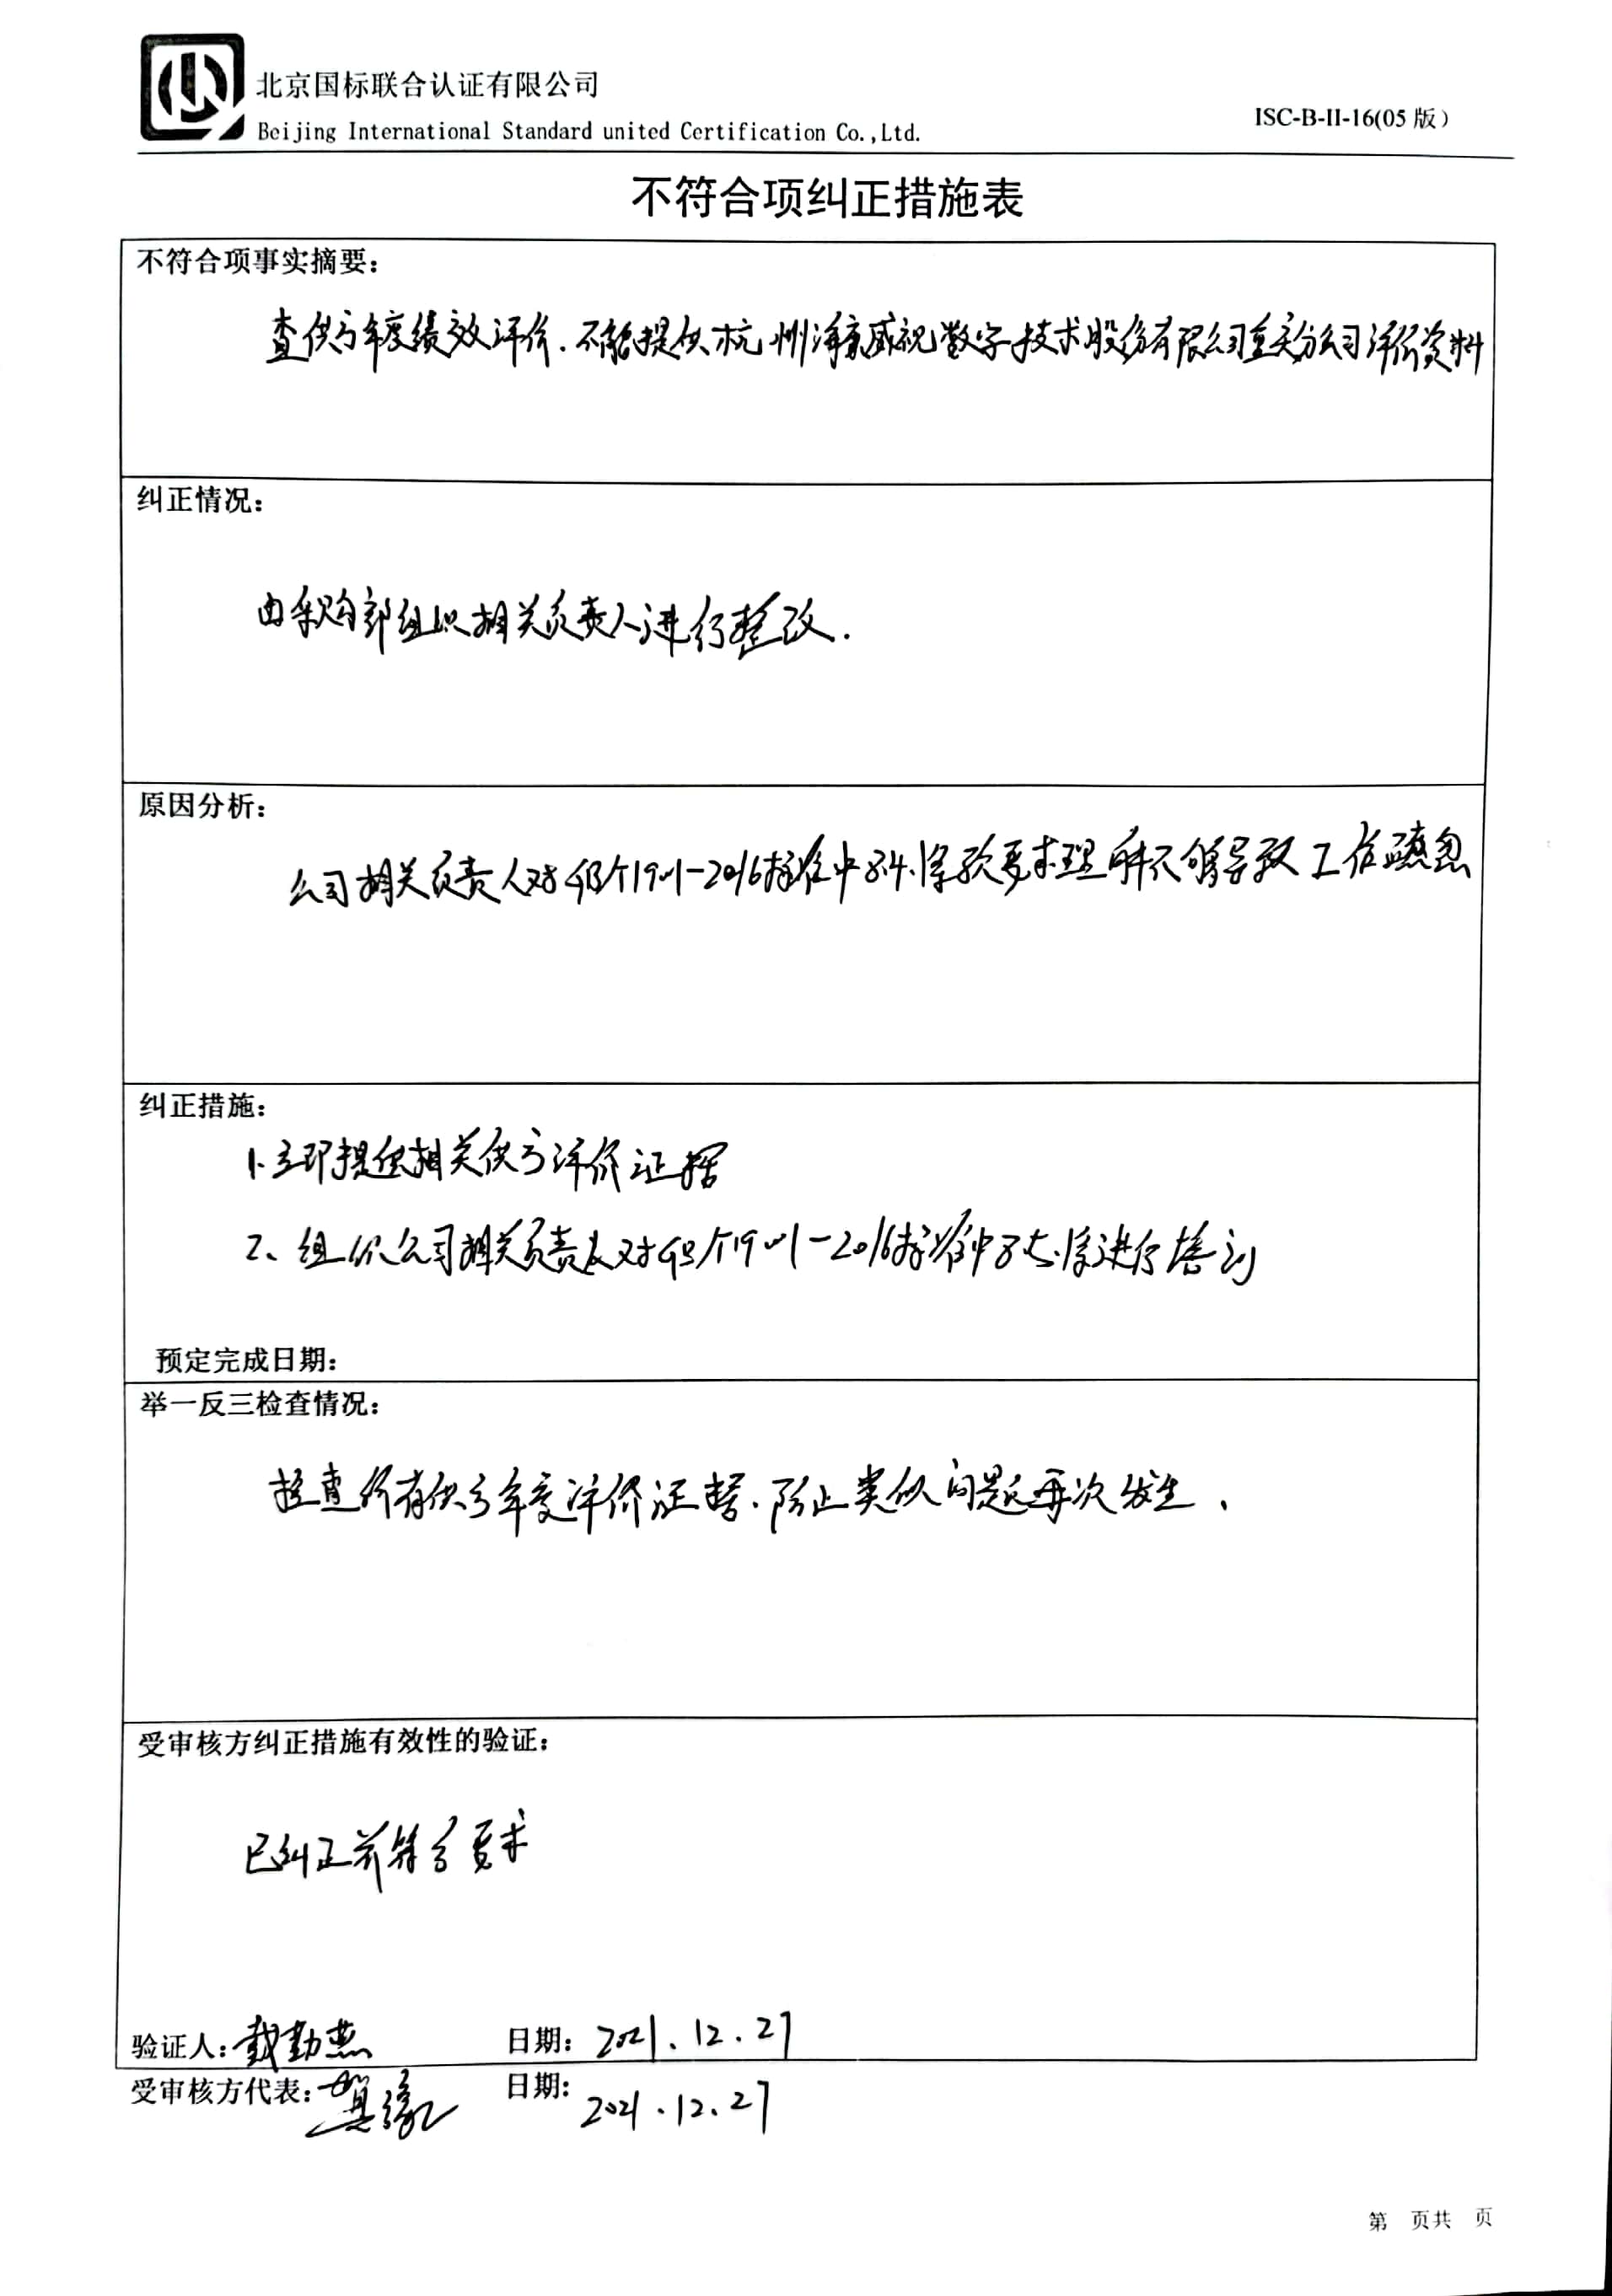 北京国标联合认证有限公司
Beijing International Standard united Certification Co.,Ltd.
ISC-B-II-16(05 版)
不符合项纠正措施表
不符合项事实摘要：
查供方年度绩效评价.不能提供杭州海康威视数字技术股份有限公司重庆分公司评价资料
纠正情况：
由采购部组织相关负责人进行整改.
原因分析：
公司相关负责人对GB/T19001-2016标准中8.4.1条款要求理解不够导致工作疏忽
纠正措施：
1.立即提供相关供方评价证据
2、组织公司相关负责人对GB/T19001-2016标准中 条进行培训
预定完成日期：
举一反三检查情况：
检查所有供方年度评价证据.防止类似问题再次发生.
受审核方纠正措施有效性的验证：
已纠正并符合要求
验证人：戴勤燕 日期：2021.12.27
受审核方代表：贺缘 日期：2021.12.27
第 页共 页